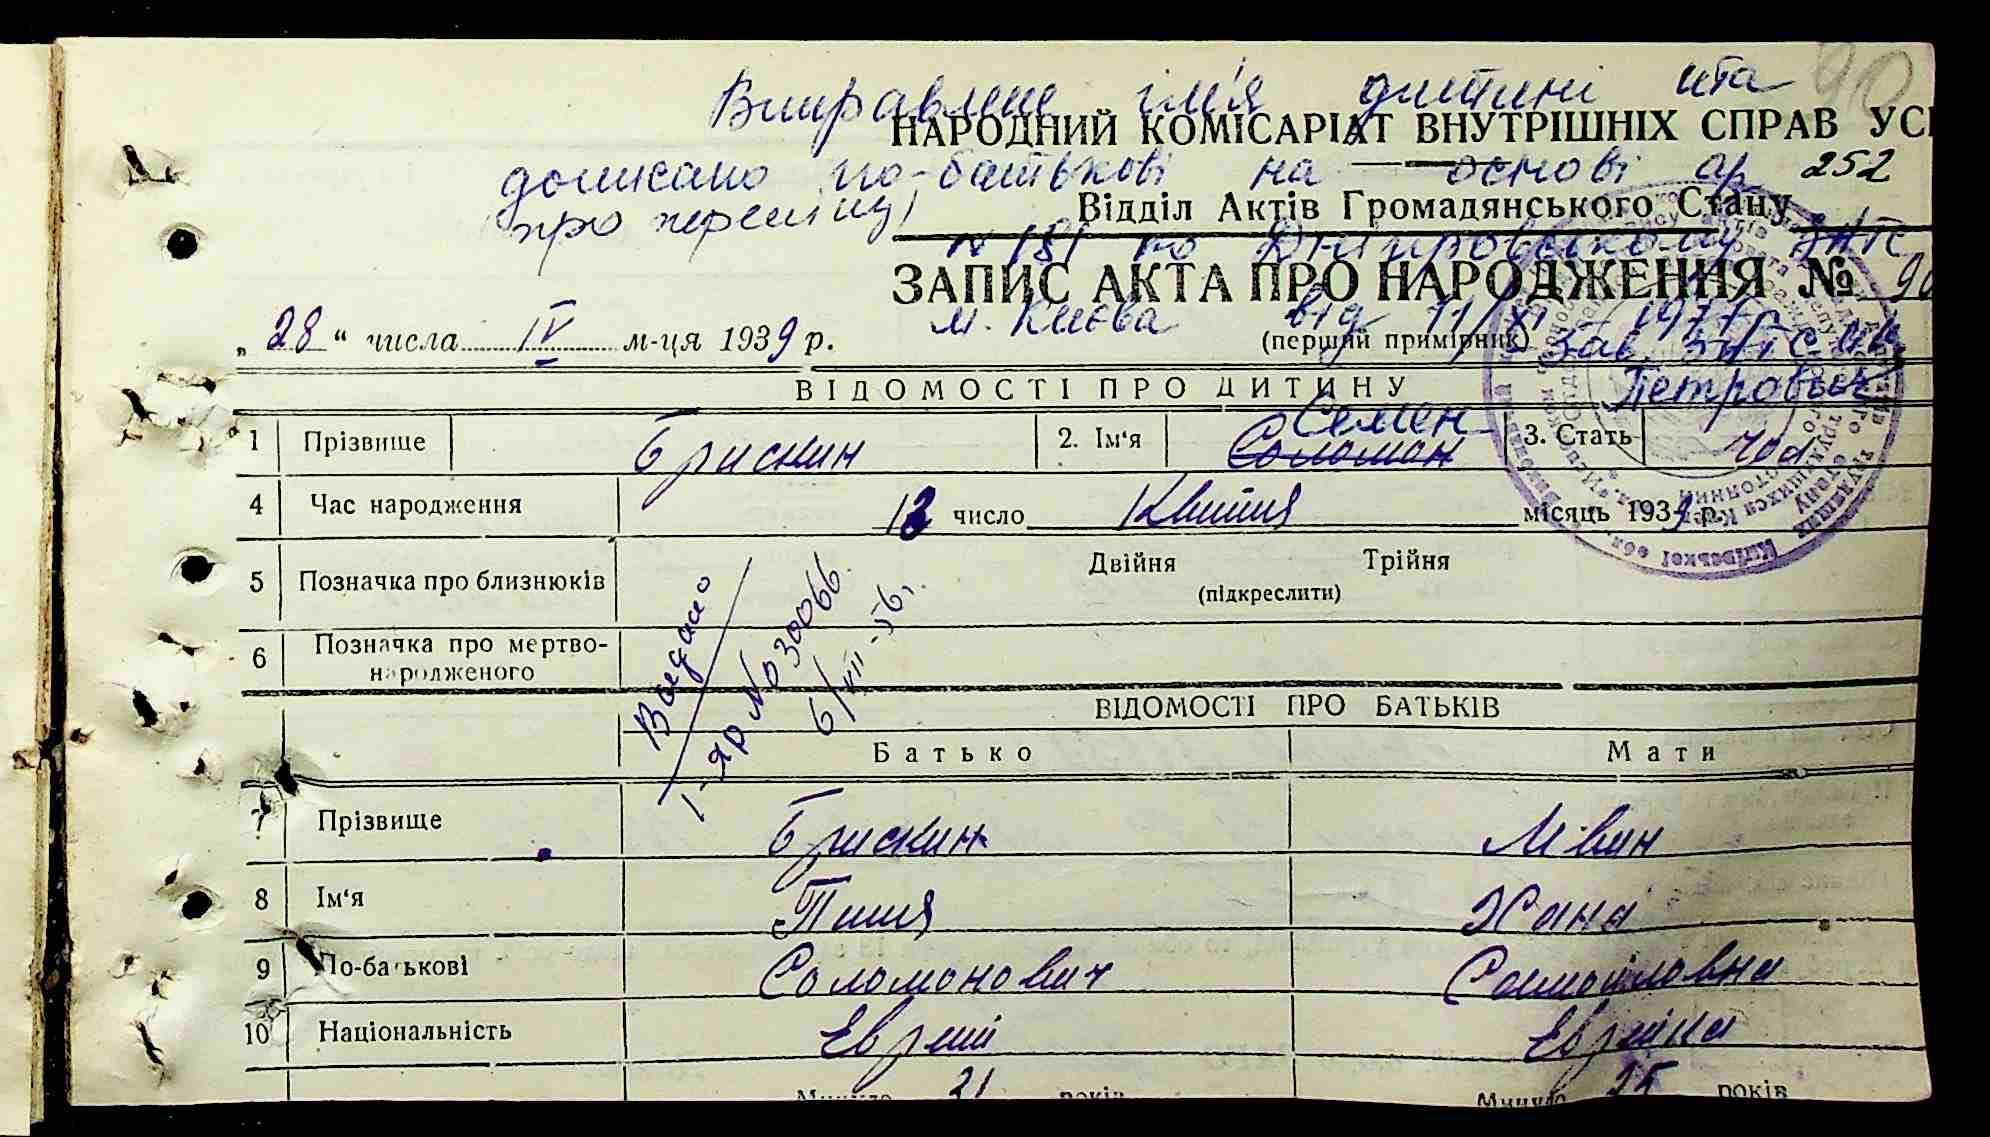 90
Виправлене ім'я дитині та
НАРОДНИЙ КОМІСАРІАТ ВНУТРІШНІХ СПРАВ УС
дописано по-батькові на основі ар 252
про переміну
Відділ Актів Громадянського Стану
N 181 по Дніпровському ЗАГС
ЗАПИС АКТА ПРО НАРОДЖЕННЯ № 90
м. Києва від 11/XI 1977
„28“ числа IV м-ця 1939 р.
(перший примірник)
Зав. ЗАГС
ВІДОМОСТІ ПРО ДИТИНУ
Петровська
1 Прізвище Брискин 2. Ім'я Семен Соломон 3. Стать чол
4 Час народження 12 число Квітня місяць 1939 р.
5 Позначка про близнюків Двійня Трійня
(підкреслити)
6 Позначка про мертво-
народженого
Видано
1-ЯР № 030066
6/VII-56.
ВІДОМОСТІ ПРО БАТЬКІВ
Батько Мати
7 Прізвище Брискин Мівин
8 Ім'я Пиня Хана
9 По-батькові Соломонович Самойловна
10 Національність Еврей Еврейка
Минуло 31 років Минуло 25 років